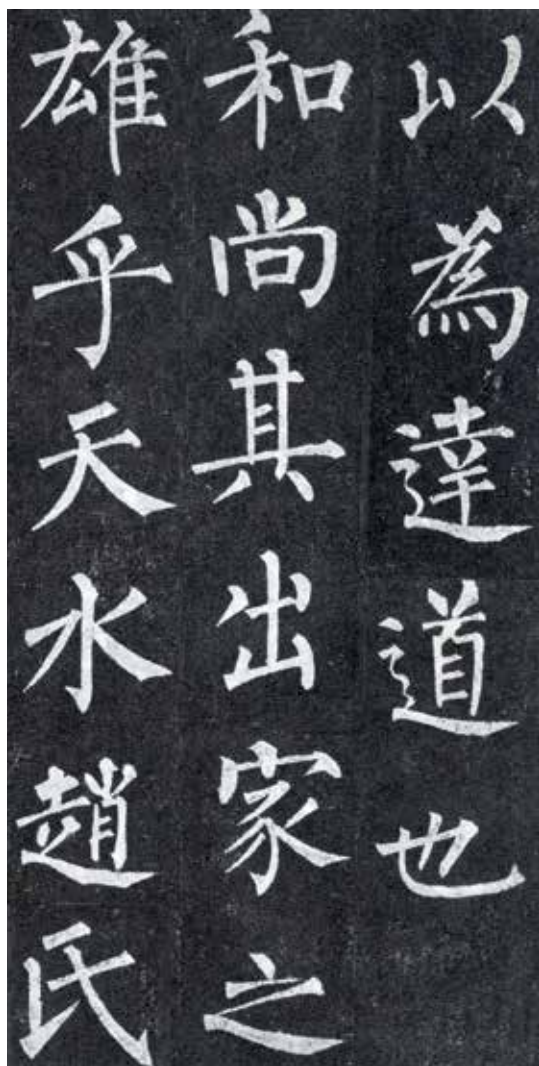 以為達道也
和尚其出家之
雄乎天水趙氏